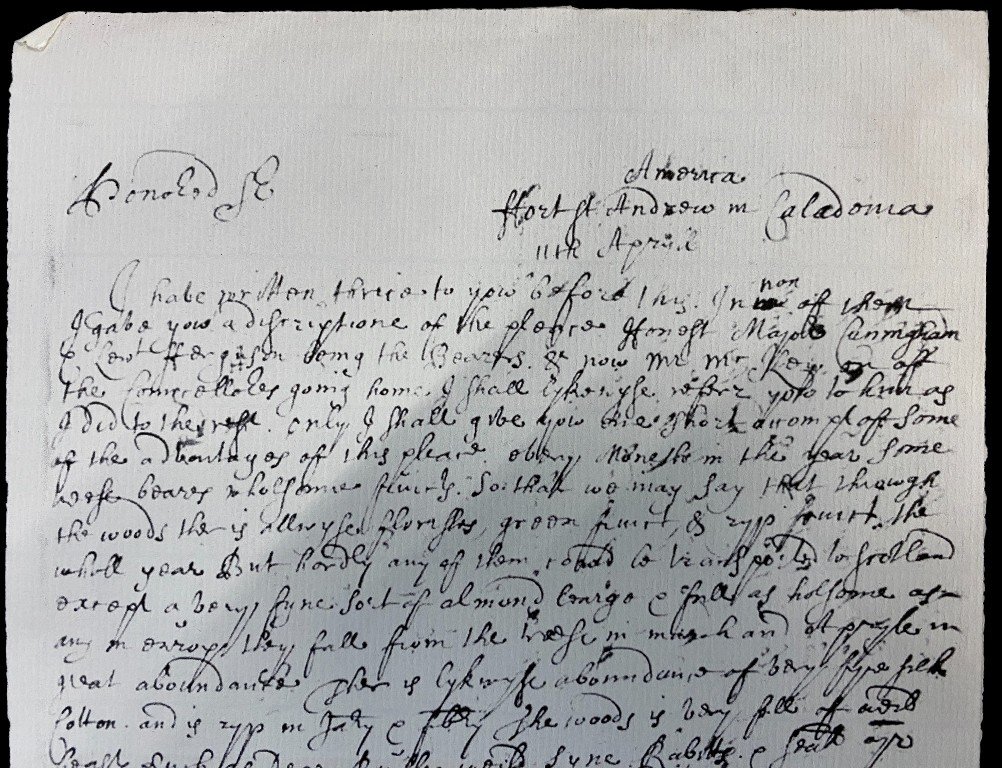 Honored Sr
America
ffort St Andrew in Caladonia
11th Aprill
I have written thrice to yow befors this. In non off them
I gave yow a discriptione of the pleace Honest Major Cuningham
& Levt fferguson being the Bearers. & now Mr off
the going home I shall lykwyse referr yow to him as
I did to the rest. only I shall give yow ane short accompt off some
of the advantages of this pleace every Moneth in the year some
treese beares wholsome fruits. So that we may say that through
the woods ther is allwyse florisses, green fruict, & ryp fruict the
wholl year But hardly any of them could be transported to Scotland
except a very fyne sort of almond learge & full as holsome as
any in europ they fall from the treese in march and Apryle in
great aboundance Ther is lykwyse aboundance of very fyne silk
Cotton. and is ryp in Jary & febry The woods is very full of
Beasts such as Dear, Rabits &